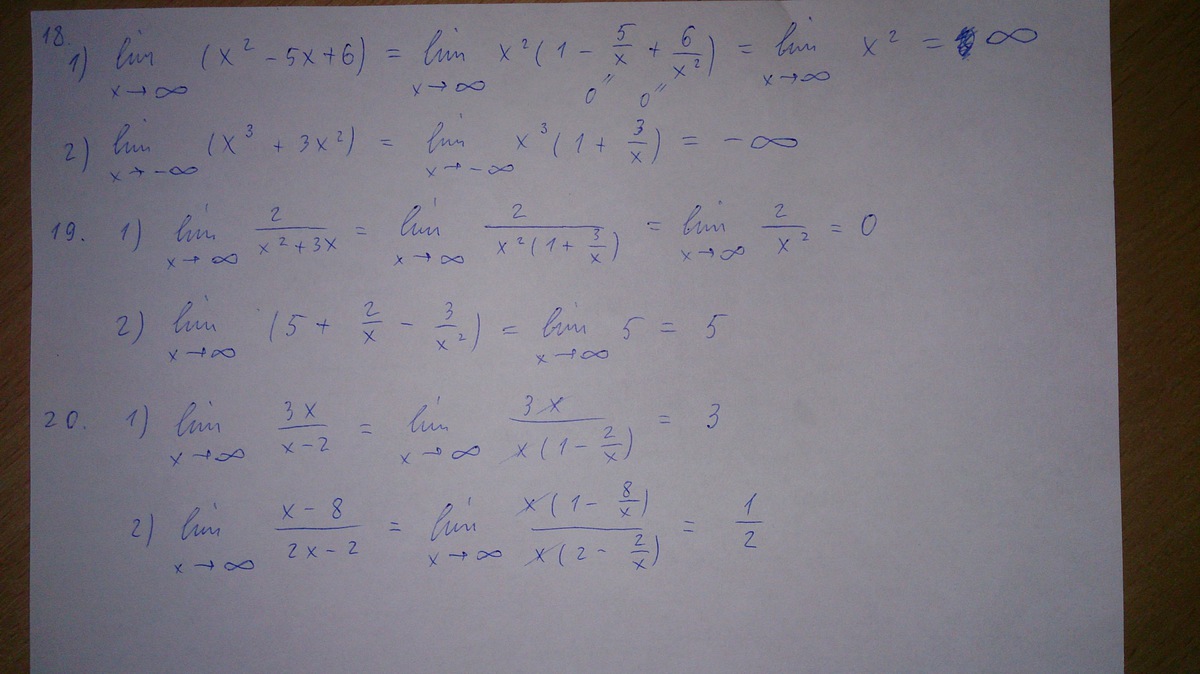 18.
1) lim x→∞ (x² - 5x + 6) = lim x→∞ x² (1 - 5/x + 6/x²) = lim x→∞ x² = ∞
0" 0"
2) lim x→-∞ (x³ + 3x²) = lim x→-∞ x³ (1 + 3/x) = -∞
19. 1) lim x→∞ 2/(x² + 3x) = lim x→∞ 2/(x² (1 + 3/x)) = lim x→∞ 2/x² = 0
2) lim x→∞ (5 + 2/x - 3/x²) = lim x→∞ 5 = 5
20. 1) lim x→∞ 3x/(x - 2) = lim x→∞ 3x/(x (1 - 2/x)) = 3
2) lim x→∞ (x - 8)/(2x - 2) = lim x→∞ x (1 - 8/x)/(x (2 - 2/x)) = 1/2